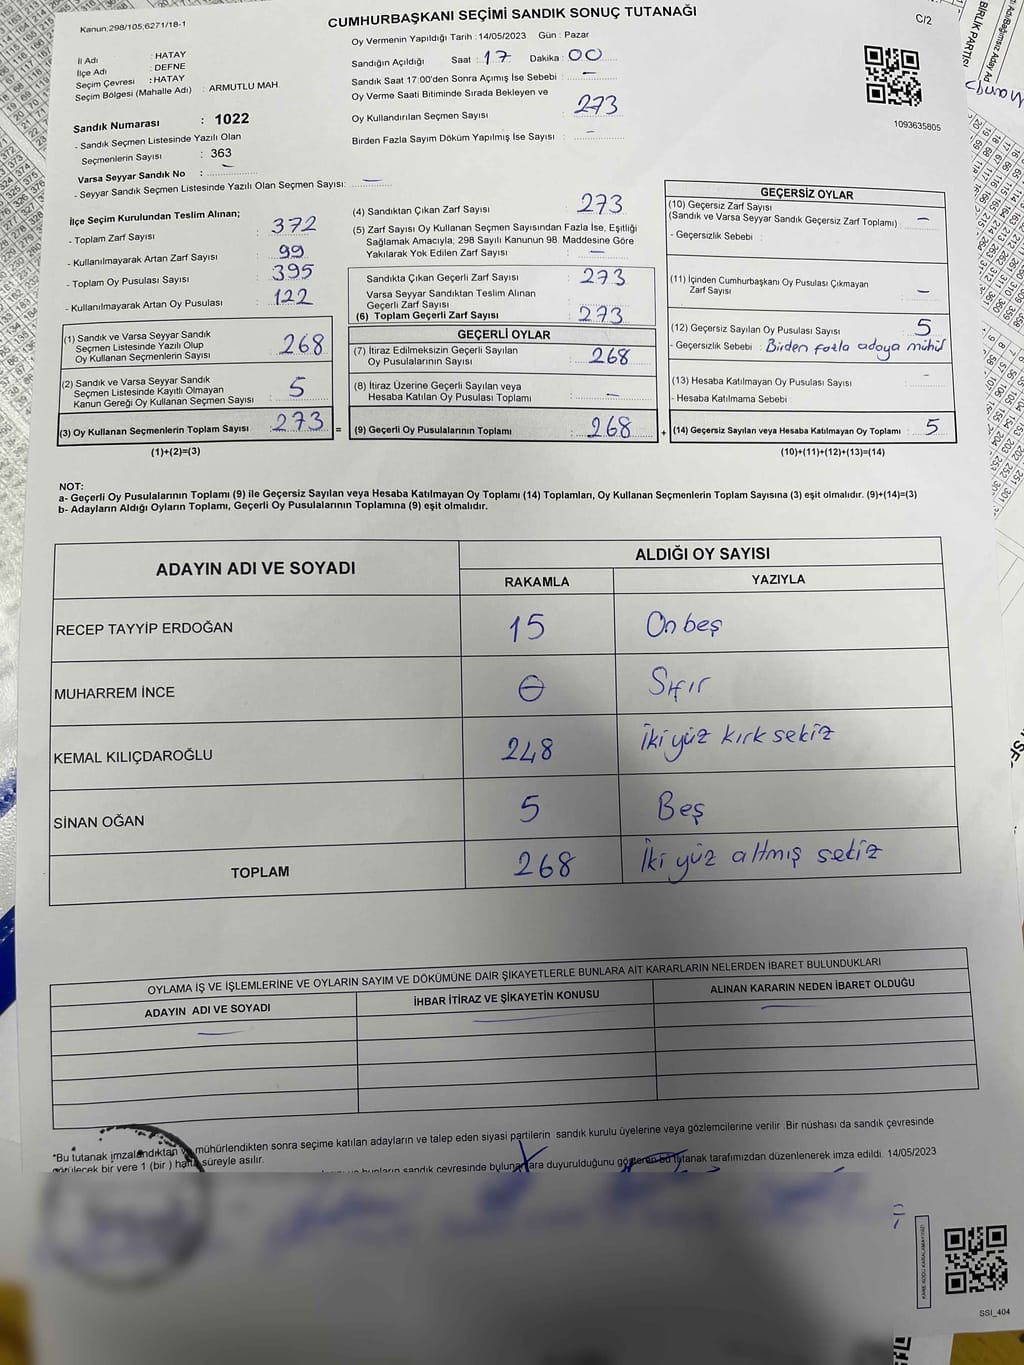 Kanun:298/105;6271/18-1
CUMHURBAŞKANI SEÇİMİ SANDIK SONUÇ TUTANAĞI
C/2
İl Adı : HATAY
İlçe Adı : DEFNE
Seçim Çevresi : HATAY
Seçim Bölgesi (Mahalle Adı) : ARMUTLU MAH.
Sandık Numarası : 1022
- Sandık Seçmen Listesinde Yazılı Olan
Seçmenlerin Sayısı : 363
Varsa Seyyar Sandık No : –
- Seyyar Sandık Seçmen Listesinde Yazılı Olan Seçmen Sayısı: –
Oy Vermenin Yapıldığı Tarih : 14/05/2023 Gün : Pazar
Sandığın Açıldığı Saat : 17 Dakika : 00
Sandık Saat 17:00'den Sonra Açımış İse Sebebi : –
Oy Verme Saati Bitiminde Sırada Bekleyen ve
Oy Kullandırılan Seçmen Sayısı : 273
Birden Fazla Sayım Döküm Yapılmış İse Sayısı : –
1093635805
İlçe Seçim Kurulundan Teslim Alınan;
- Toplam Zarf Sayısı : 372
- Kullanılmayarak Artan Zarf Sayısı : 99
- Toplam Oy Pusulası Sayısı : 395
- Kullanılmayarak Artan Oy Pusulası : 122
(1) Sandık ve Varsa Seyyar Sandık
Seçmen Listesinde Yazılı Olup
Oy Kullanan Seçmenlerin Sayısı : 268
(2) Sandık ve Varsa Seyyar Sandık
Seçmen Listesinde Kayıtlı Olmayan
Kanun Gereği Oy Kullanan Seçmen Sayısı : 5
(3) Oy Kullanan Seçmenlerin Toplam Sayısı : 273 =
(1)+(2)=(3)
(4) Sandıktan Çıkan Zarf Sayısı : 273
(5) Zarf Sayısı Oy Kullanan Seçmen Sayısından Fazla İse, Eşitliği
Sağlamak Amacıyla; 298 Sayılı Kanunun 98. Maddesine Göre
Yakılarak Yok Edilen Zarf Sayısı : –
Sandıkta Çıkan Geçerli Zarf Sayısı : 273
Varsa Seyyar Sandıktan Teslim Alınan
Geçerli Zarf Sayısı :
(6) Toplam Geçerli Zarf Sayısı : 273
GEÇERLİ OYLAR
(7) İtiraz Edilmeksizin Geçerli Sayılan
Oy Pusulalarının Sayısı : 268
(8) İtiraz Üzerine Geçerli Sayılan veya
Hesaba Katılan Oy Pusulası Toplamı : –
(9) Geçerli Oy Pusulalarının Toplamı : 268 +
GEÇERSİZ OYLAR
(10) Geçersiz Zarf Sayısı
(Sandık ve Varsa Seyyar Sandık Geçersiz Zarf Toplamı) : –
- Geçersizlik Sebebi :
(11) İçinden Cumhurbaşkanı Oy Pusulası Çıkmayan
Zarf Sayısı : –
(12) Geçersiz Sayılan Oy Pusulası Sayısı : 5
- Geçersizlik Sebebi : Birden fazla adaya mühür
(13) Hesaba Katılmayan Oy Pusulası Sayısı : –
- Hesaba Katılmama Sebebi :
(14) Geçersiz Sayılan veya Hesaba Katılmayan Oy Toplamı : 5
(10)+(11)+(12)+(13)=(14)
NOT:
a- Geçerli Oy Pusulalarının Toplamı (9) ile Geçersiz Sayılan veya Hesaba Katılmayan Oy Toplamı (14) Toplamları, Oy Kullanan Seçmenlerin Toplam Sayısına (3) eşit olmalıdır. (9)+(14)=(3)
b- Adayların Aldığı Oyların Toplamı, Geçerli Oy Pusulalarının Toplamına (9) eşit olmalıdır.
ADAYIN ADI VE SOYADI
ALDIĞI OY SAYISI
RAKAMLA YAZIYLA
RECEP TAYYİP ERDOĞAN 15 On beş
MUHARREM İNCE 0 Sıfır
KEMAL KILIÇDAROĞLU 248 İki yüz kırk sekiz
SİNAN OĞAN 5 Beş
TOPLAM 268 İki yüz altmış sekiz
OYLAMA İŞ VE İŞLEMLERİNE VE OYLARIN SAYIM VE DÖKÜMÜNE DAİR ŞİKAYETLERLE BUNLARA AİT KARARLARIN NELERDEN İBARET BULUNDUKLARI
ADAYIN ADI VE SOYADI İHBAR İTİRAZ VE ŞİKAYETİN KONUSU ALINAN KARARIN NEDEN İBARET OLDUĞU
*Bu tutanak imzalandıktan ve mühürlendikten sonra seçime katılan adayların ve talep eden siyasi partilerin sandık kurulu üyelerine veya gözlemcilerine verilir. Bir nüshası da sandık çevresinde
görülecek bir yere 1 (bir ) hafta süreyle asılır.
bunların sandık çevresinde bulunanlara duyurulduğunu gösteren bu tutanak tarafımızdan düzenlenerek imza edildi. 14/05/2023
SSI_404
BİRLİK PARTİSİ